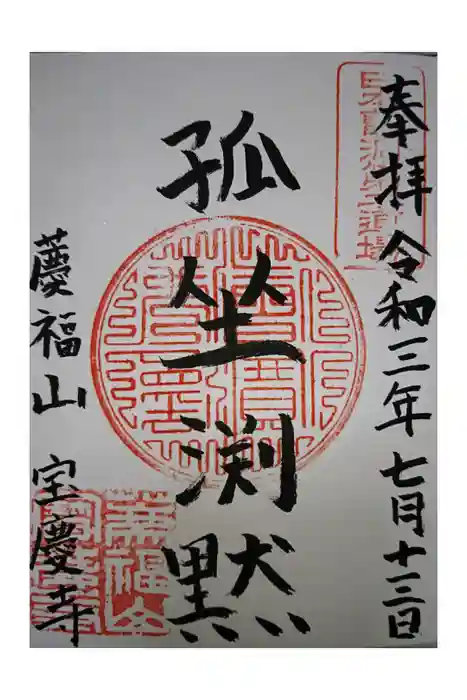 奉拝 令和三年七月十三日
孤坐渕黙
薦福山 宝慶寺